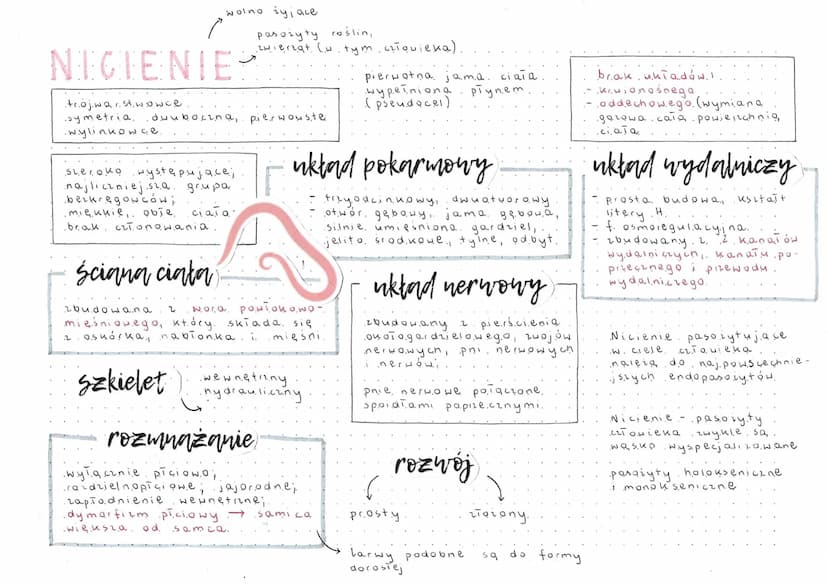 wolno żyjące
pasożyty roślin,
zwierząt (w tym człowieka)
NICIENIE
trójwarstwowce
symetria dwuboczna, pierwouste
wylinkowce
pierwotna jama ciała
wypełniona płynem
(pseudocel)
brak układów!
- krwionośnego
- oddechowego (wymiana
gazowa całą powierzchnią
ciała
szeroko występujące,
najliczniejsza grupa
bezkręgowców;
miękkie, obłe ciała
brak członowania
układ pokarmowy
- trzyodcinkowy, dwuotworowy
- otwór gębowy, jama gębowa,
silnie umięśniona gardziel,
jelito środkowe, tylne, odbyt.
układ wydalniczy
- prosta budowa, kształt
litery H.
- f. osmoregulacyjna
- zbudowany z 2 kanałów
wydalniczych, kanału po-
przecznego i przewodu
wydalniczego.
ściana ciała
zbudowana z wora powłokowo-
mięśniowego, który składa się
z oskórka, nabłonka i mięśni
układ nerwowy
zbudowany z pierścienia
okołogardzielowego, zwojów
nerwowych, pni nerwowych
i nerwów;
pnie nerwowe połączone
spoidłami poprzecznymi.
szkielet
wewnętrzny
hydrauliczny
Nicienie pasożytujące
w ciele człowieka
należą do najpowszechnie-
jszych endopasożytów
Nicienie - pasożyty
człowieka zwykle są
wąsko wyspecjalizowane
pasożyty holokseniczne
i monokseniczne
rozmnażanie
wyłącznie płciowo;
rozdzielnopłciowe; jajorodne;
zapłodnienie wewnętrzne;
dymorfizm płciowy → samica
większa od samca.
rozwój
prosty
złożony
larwy podobne są do formy
dorosłej